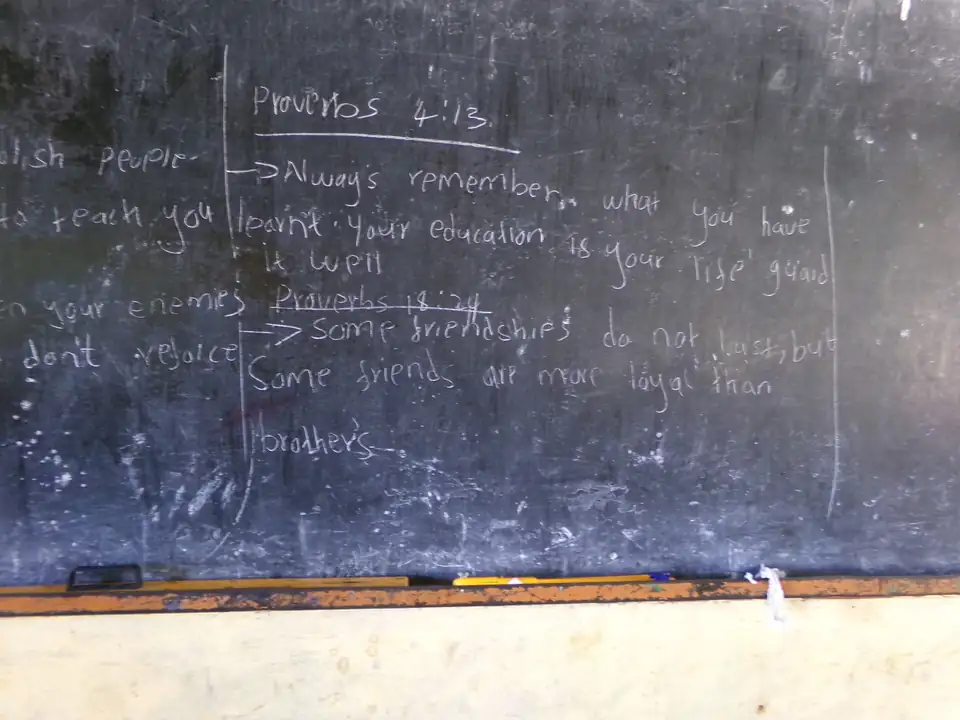 Proverbs 4:13.
→ Always remember what you have
learnt. Your education is your life guard
it well
Proverbs 18:24
→ Some friendships do not last, but
Some friends are more loyal than
brother's
people
to teach you
your enemies
don't rejoice